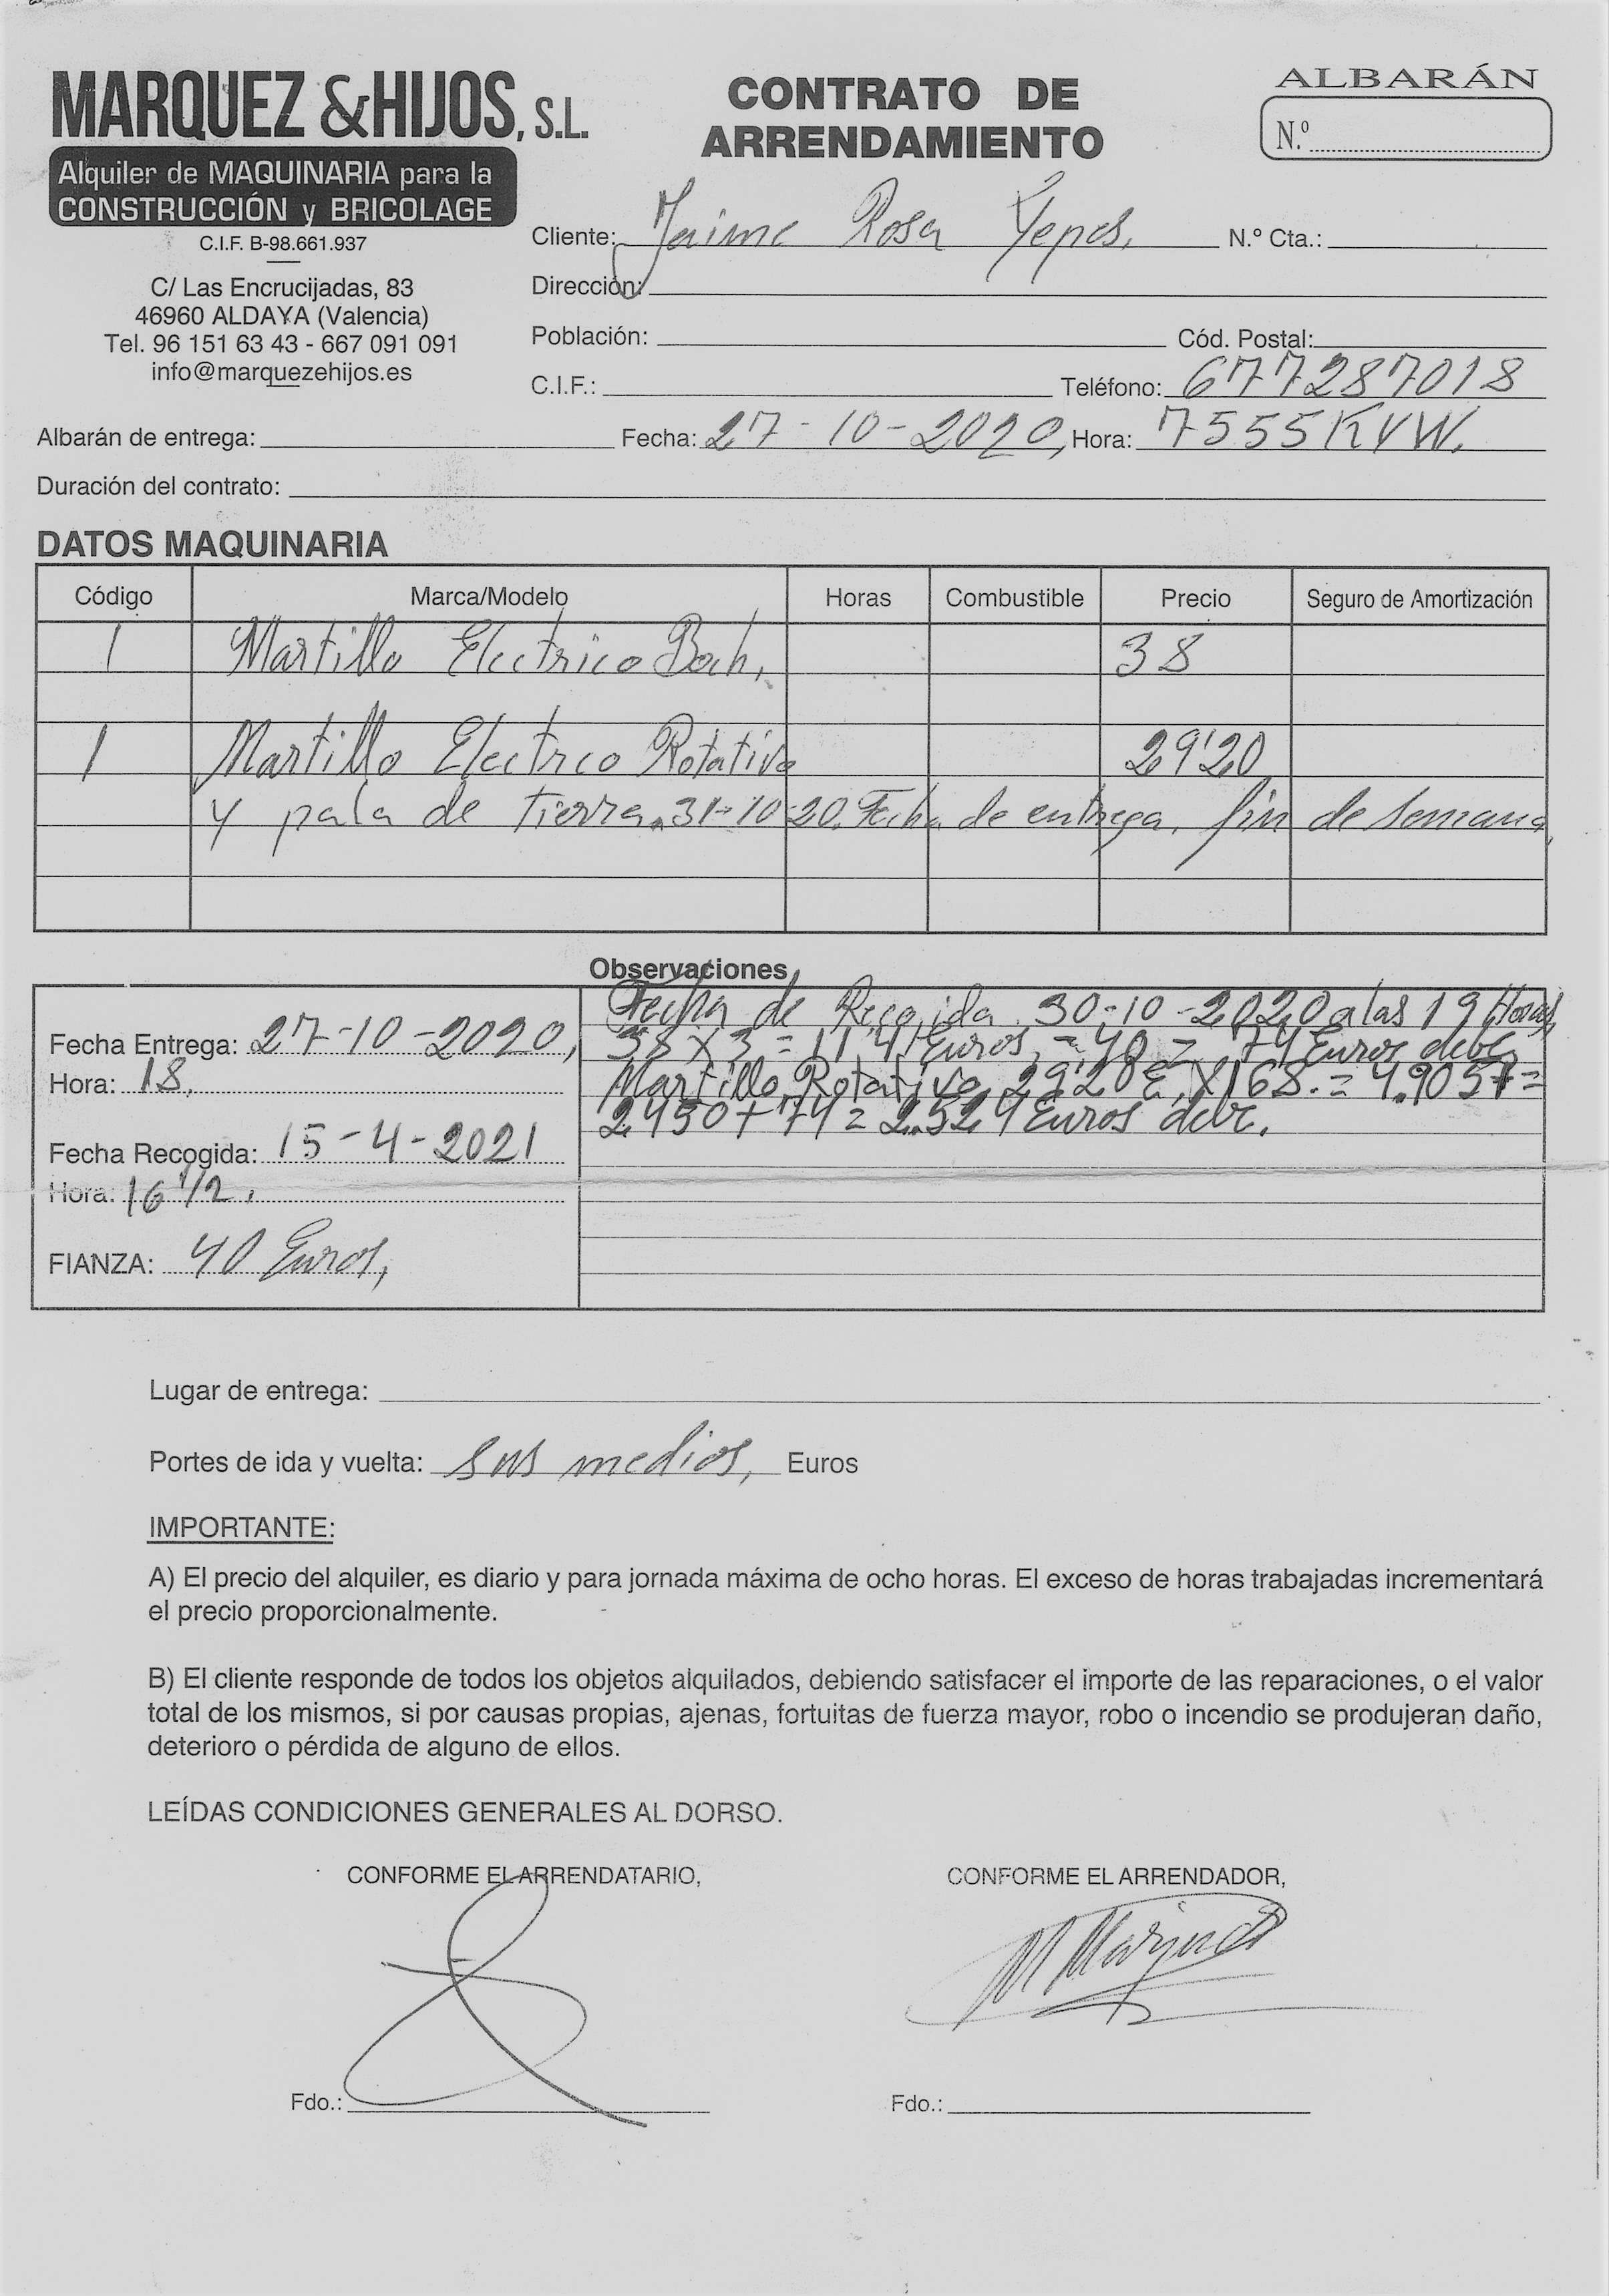 MARQUEZ &HIJOS, S.L.
Alquiler de MAQUINARIA para la
CONSTRUCCIÓN y BRICOLAGE
C.I.F. B-98.661.937
C/ Las Encrucijadas, 83
46960 ALDAYA (Valencia)
Tel. 96 151 63 43 - 667 091 091
info@marquezehijos.es
CONTRATO DE
ARRENDAMIENTO
ALBARÁN
N.º
Cliente: Jaime Rosa Yepes, N.º Cta.:
Dirección:
Población: Cód. Postal:
C.I.F.: Teléfono: 677287018
Albarán de entrega: Fecha: 27-10-2020, Hora: 7555KVW.
Duración del contrato:
DATOS MAQUINARIA
Código Marca/Modelo Horas Combustible Precio Seguro de Amortización
1 Martillo Electrico Boch, 38
1 Martillo Electrco Rotativo 29'20
y pala de tierra. 31-10-20. Fecha de entrega, fin de semana,
Observaciones
Fecha de Recogida 30-10-2020 a las 19 Horas,
38 x 3 = 114 Euros, = 40 = 74 Euros debe,
Martillo Rotativo 29'20 €, X 168. = 4.9057=
2.450 + 74 = 2.524 Euros debe.
Fecha Entrega: 27-10-2020,
Hora: 18,
Fecha Recogida: 15-4-2021
Hora: 16 1/2,
FIANZA: 40 Euros,
Lugar de entrega:
Portes de ida y vuelta: sus medios, Euros
IMPORTANTE:
A) El precio del alquiler, es diario y para jornada máxima de ocho horas. El exceso de horas trabajadas incrementará
el precio proporcionalmente.
B) El cliente responde de todos los objetos alquilados, debiendo satisfacer el importe de las reparaciones, o el valor
total de los mismos, si por causas propias, ajenas, fortuitas de fuerza mayor, robo o incendio se produjeran daño,
deterioro o pérdida de alguno de ellos.
LEÍDAS CONDICIONES GENERALES AL DORSO.
CONFORME EL ARRENDATARIO, CONFORME EL ARRENDADOR,
M Marquez
Fdo.: Fdo.: